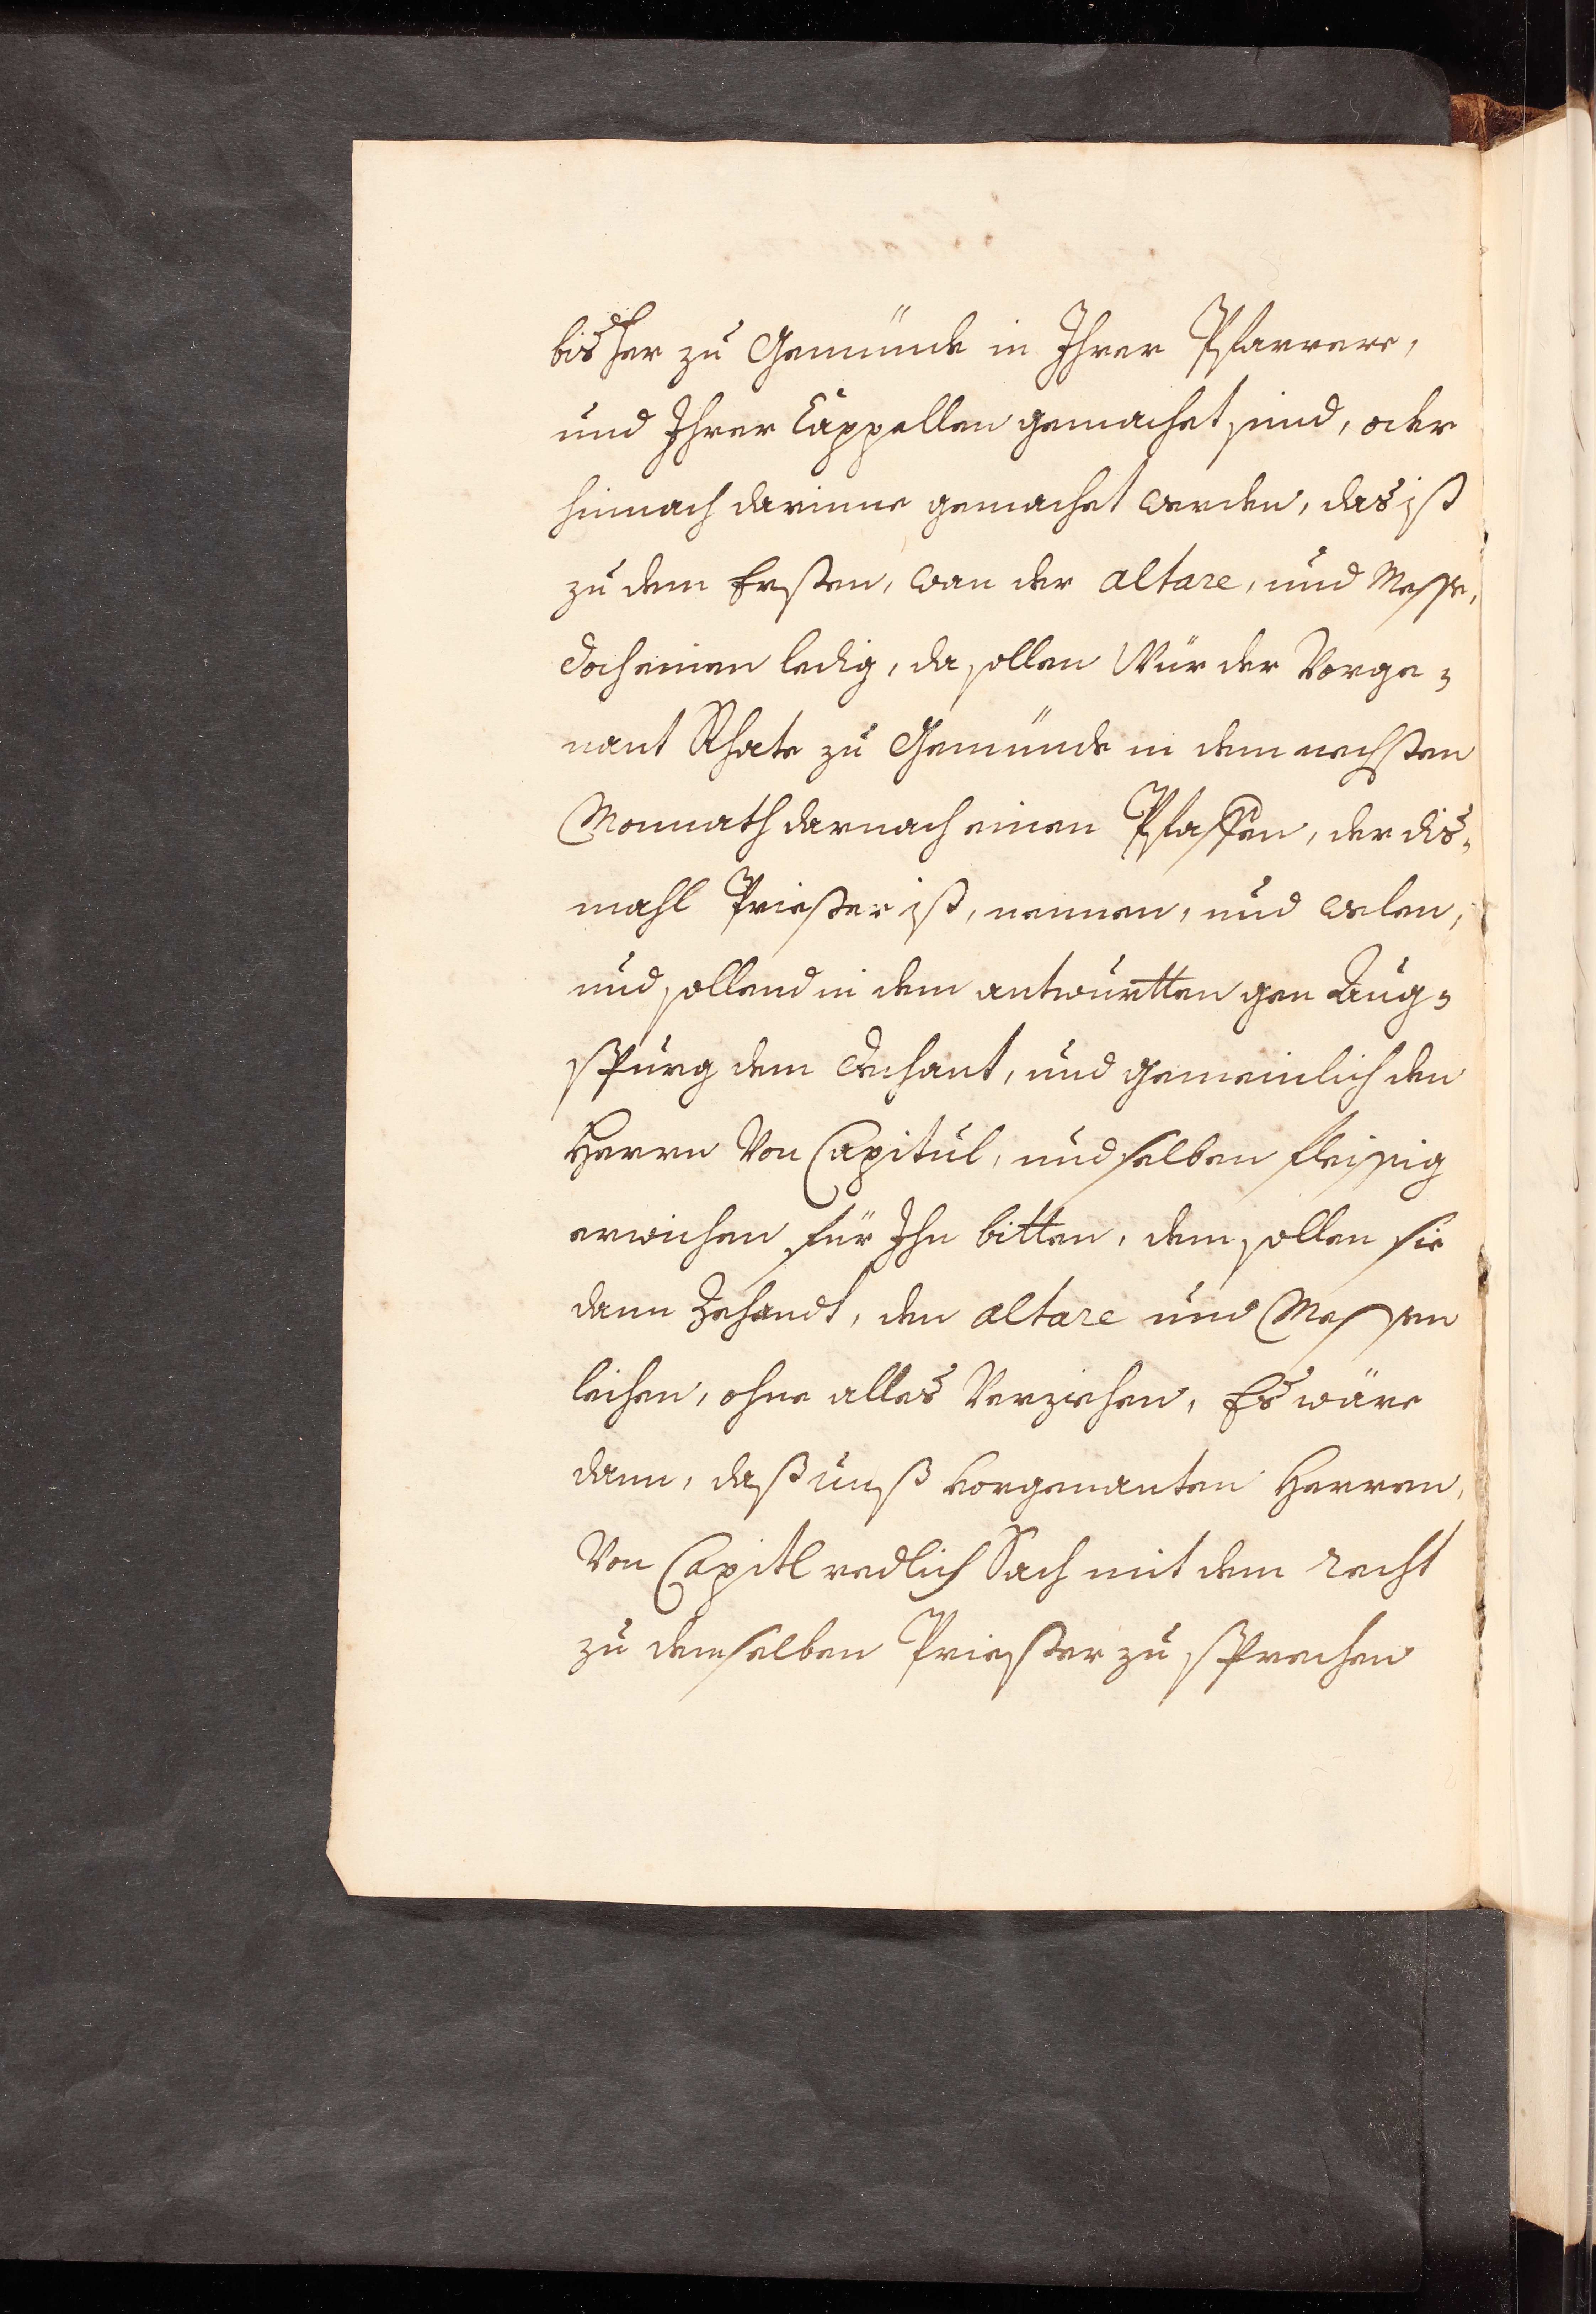 bisher zu Gemünde in Ihrer Pfarrere,
und Ihrer Cappellen gemachet sind, oder
hinnach darinne gemachet werden, das ist
zu dem Ersten, wan der altare, und Messe,
docheinen ledig, da sollen Wür der Vorge-
nant Rhate zu Gemünde in dem nechsten
Monnath darnach einen Pfaffen, der dis-
mahl Priester ist, nennen, und welen,
und sollend in dem antwurtten gen Aug-
spurg dem Dechant, und gemeinlich den
Herrn Von Capitul, und selben fleissig
erwichen für Ihn bitten, dem sollen sie
dann Zehandt, den altare und Messen
leihen, ohne alles Verziehen, Es wäre
dann, daß unß Vorgenanten Herren,
Von Capitl redlich Sach mit dem recht
zu demselben Priester zu sprechen